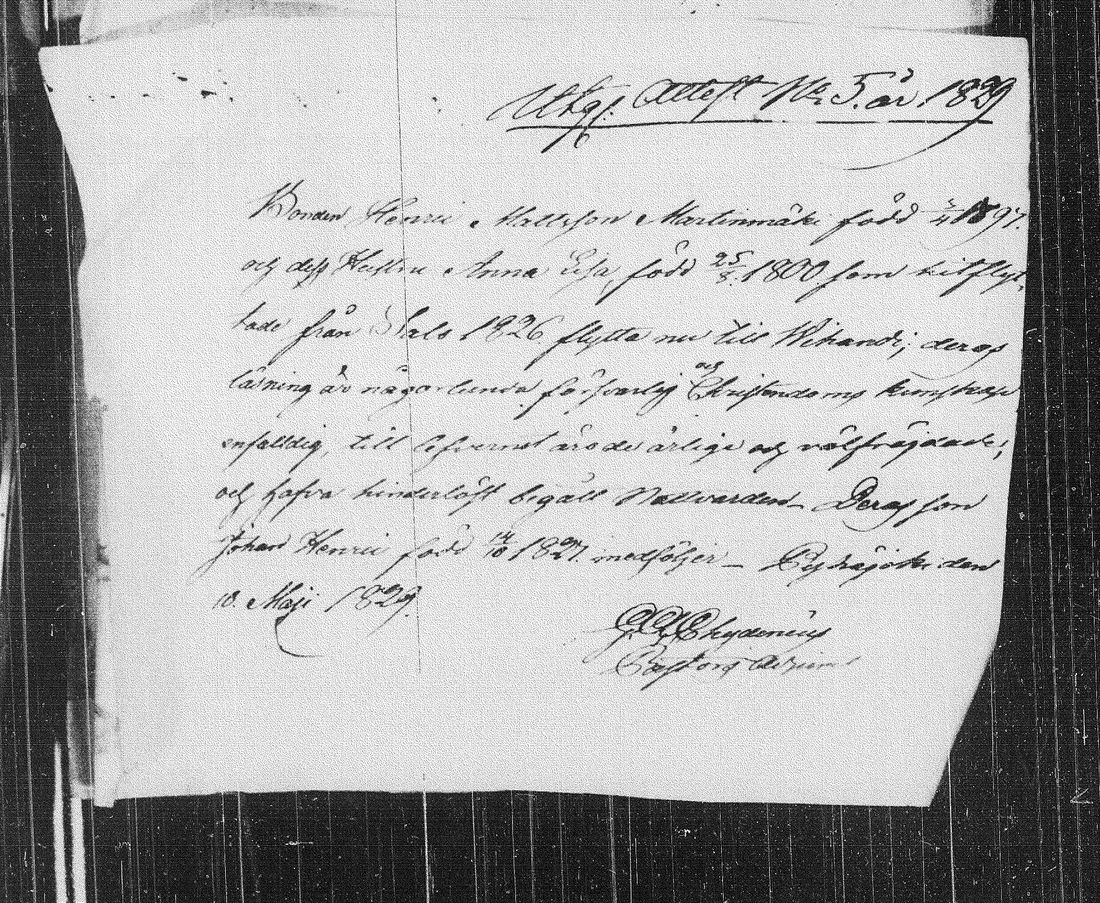 Utgs. Attest No 5. år 1829
Bonden Henric Mattsson Martinmäki född 3/4 1797.
och dess Hustru Anna Lisa, född 25/8. 1800 som hitflyt-
tade från Salo 1826. flytta nu till Wihandi; deras
läsning är någorlunda försvarlig och Christendoms kunskap
enfalldig, till lefvernet äro de ärlige och välfräjdade;
och hafva hinderlöst begått Nattvarden – Deras son
Johan Henric född 14/10 1827. medföljer – Pyhäjoki den
10. Maji 1829.
Chydenius
Pastors Adjunct